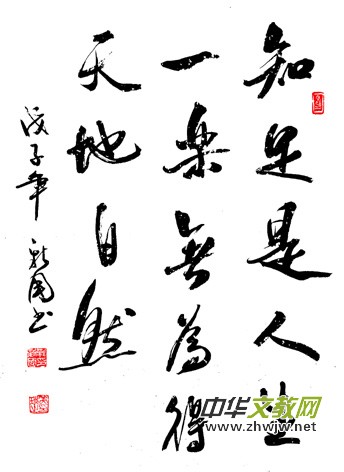 知足是人生
一樂無為得
天地自然
戊子年 新國书
中华文教网
www.zhwjw.net